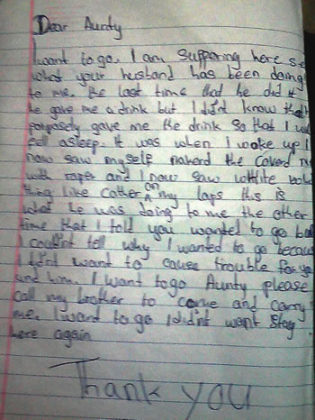 Dear Aunty
I want to go. I am suppring here s
what your husband has been doing
to me, the last time that he did it
he gave me a drink but I did't know that
porposely gave me the drink so that I w
fall asleep. it was when I woke up I
now saw myself nakard the coverd
with raper and I now saw whtite
thing like Cather on my laps this is
what he was doing to me the other
time that I told you wanted to go ba
I could't tell why I wanted to go becau
I did't want to cause trouble for yo
and him, I want to go Aunty please
call my brother to come and carry
me. I want to go I did'nt want stay
here again
Thank you